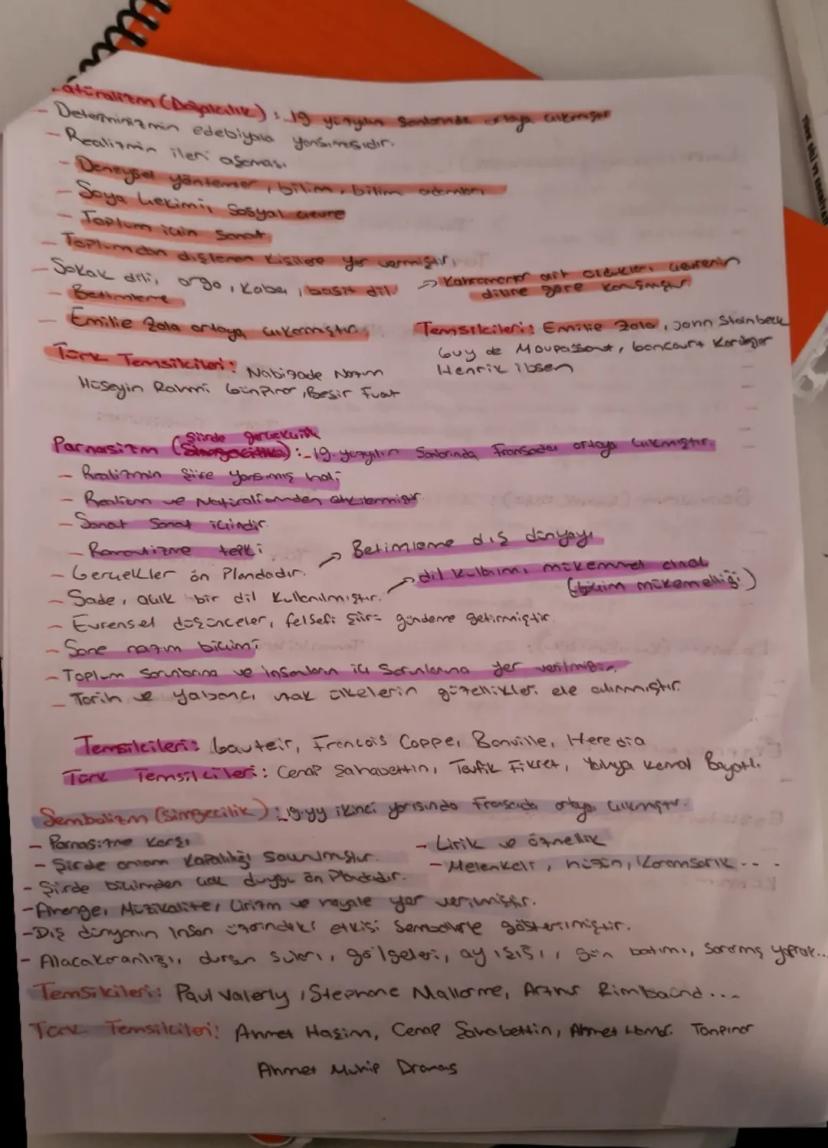 atüralizm (Doğalcılık) : 19 yüzyılın sonlarında ortaya çıkmıştır
- Determinizmin edebiyata yansımasıdır.
- Realizmin ileri aşaması
- Deneysel yöntemler, bilim, bilim adamları
- Soya çekimi, Sosyal çevre
- Toplum için sanat
- Toplumdan dışlanan kişilere yer vermiştir.
- Sokak dili, argo, kaba, basit dil → Kahramanlar ait oldukları çevrenin diline göre konuşmuş
- Betimleme
- Emilie Zola ortaya çıkarmıştır.
Temsilcileri: Emilie Zola, John Steinbeck
Guy de Maupassant, Goncourt Kardeşler
Henrik Ibsen
Türk Temsilcileri: Nabizade Nazım
Hüseyin Rahmi Günpınar, Beşir Fuat
Parnasizm (Şiirde gerçekçilik) : 19. yüzyılın Sonlarında Fransada ortaya çıkmıştır.
- Realizmin Şiire yansımış hali
- Realizm ve Natüralizmden etkilenmiştir
- Sanat Sanat içindir
- Romantizme tepki
- Gerçekler ön Plandadır. → Betimleme dış dünyayı
- Sade, açık bir dil kullanılmıştır. → dil kullanımı mükemmel
(biçim mükemelliği)
- Evrensel düşünceler, felsefi şiiri gündeme getirmiştir
- Sone nazım biçimi
- Toplum Sorunlarına ve insanların iç Sorunlarına yer verilmiş
- Tarih ve yabancı uzak ülkelerin güzellikleri ele alınmıştır.
Temsilcileri: Gauteir, Francois Coppe, Banville, Heredia
Türk Temsilcileri: Cenap Şahabettin, Tevfik Fikret, Yahya Kemal Beyatlı
Sembolizm (Simgecilik) : 19.yy ikinci yarısında Fransada ortaya çıkmıştır.
- Parnasizme karşı
- Lirik ve öznellik
- Şiirde anlam kapalılığı savunmuştur.
- Melenkoli, hüzün, Karamsarlık...
- Şiirde biçimden çok duygu ön Plandadır.
- Ahenge, Müzikalite, Lirizm ve hayale yer verilmiştir.
- Dış dünyanın insan üzerindeki etkisi Sembollerle gösterilmiştir.
- Alacakaranlığı, durgun suları, gölgeleri, ay ışığı, gün batımı, sararmış yaprak...
Temsilcileri: Paul Valerly, Stephane Mallarme, Rimbaund...
Türk Temsilcileri: Ahmet Haşim, Cenap Şahabettin, Ahmet Hamdi Tanpınar
Ahmet Muhip Dranas